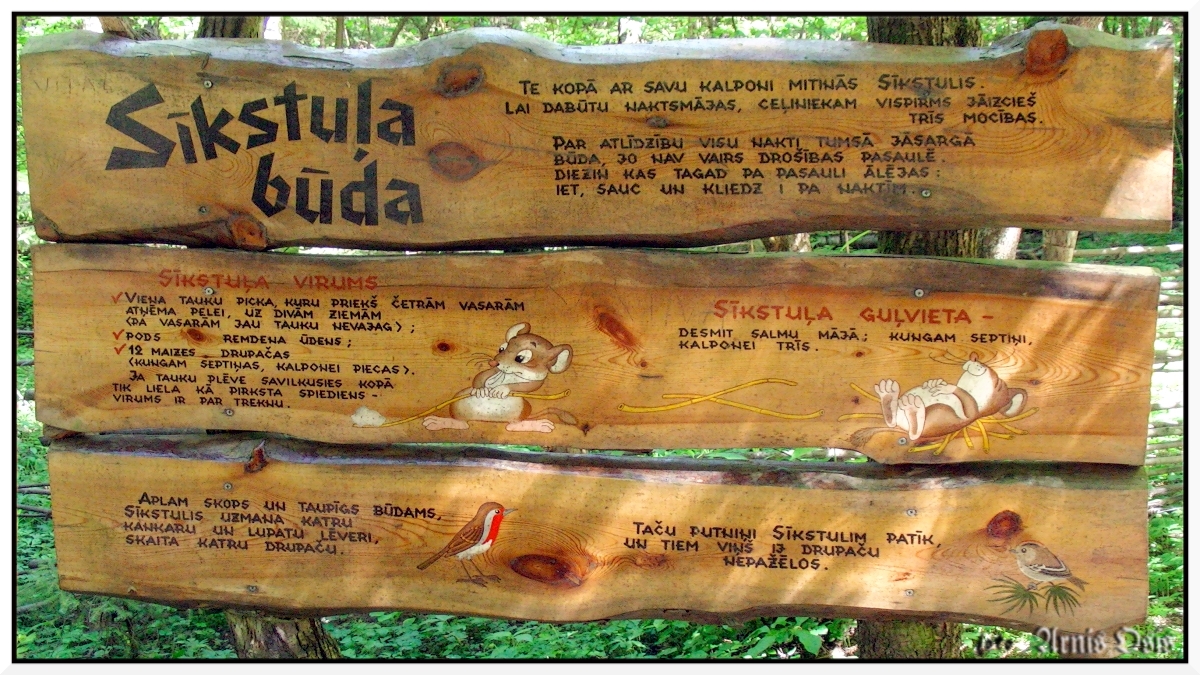 Sīkstuļa
būda
TE KOPĀ AR SAVU KALPONI MITINĀS SĪKSTULIS.
LAI DABŪTU NAKTSMĀJAS, CEĻINIEKAM VISPIRMS JĀIZCIEŠ
TRĪS MOCĪBAS.
PAR ATLĪDZĪBU VISU NAKTI TUMSĀ JĀSARGĀ
BŪDA, JO NAV VAIRS DROŠĪBAS PASAULĒ.
DIEZIN KAS TAGAD PA PASAULI ĀLĒJAS:
IET, SAUC UN KLIEDZ I PA NAKTĪM.
SĪKSTUĻA VIRUMS
✓VIENA TAUKU PICKA, KURU PRIEKŠ ČETRĀM VASARĀM
ATŅĒMA PELEI, UZ DIVĀM ZIEMĀM
(PA VASARĀM JAU TAUKU NEVAJAG);
✓PODS REMDENA ŪDENS;
✓12 MAIZES DRUPAČAS
(KUNGAM SEPTIŅAS, KALPONEI PIECAS).
JA TAUKU PLĒVE SAVILKUSIES KOPĀ
TIK LIELA KĀ PIRKSTA SPIEDIENS -
VIRUMS IR PAR TREKNU.
SĪKSTUĻA GUĻVIETA -
DESMIT SALMU MĀJĀ: KUNGAM SEPTIŅI,
KALPONEI TRĪS.
APLAM SKOPS UN TAUPĪGS BŪDAMS,
SĪKSTULIS UZMANA KATRU
KANKARU UN LUPATU LĒVERI,
SKAITA KATRU DRUPAČU.
TAČU PUTNIŅI SĪKSTULIM PATĪK,
UN TIEM VIŅŠ IJ DRUPAČU
NEPAŽĒLOS.
foto Arnis